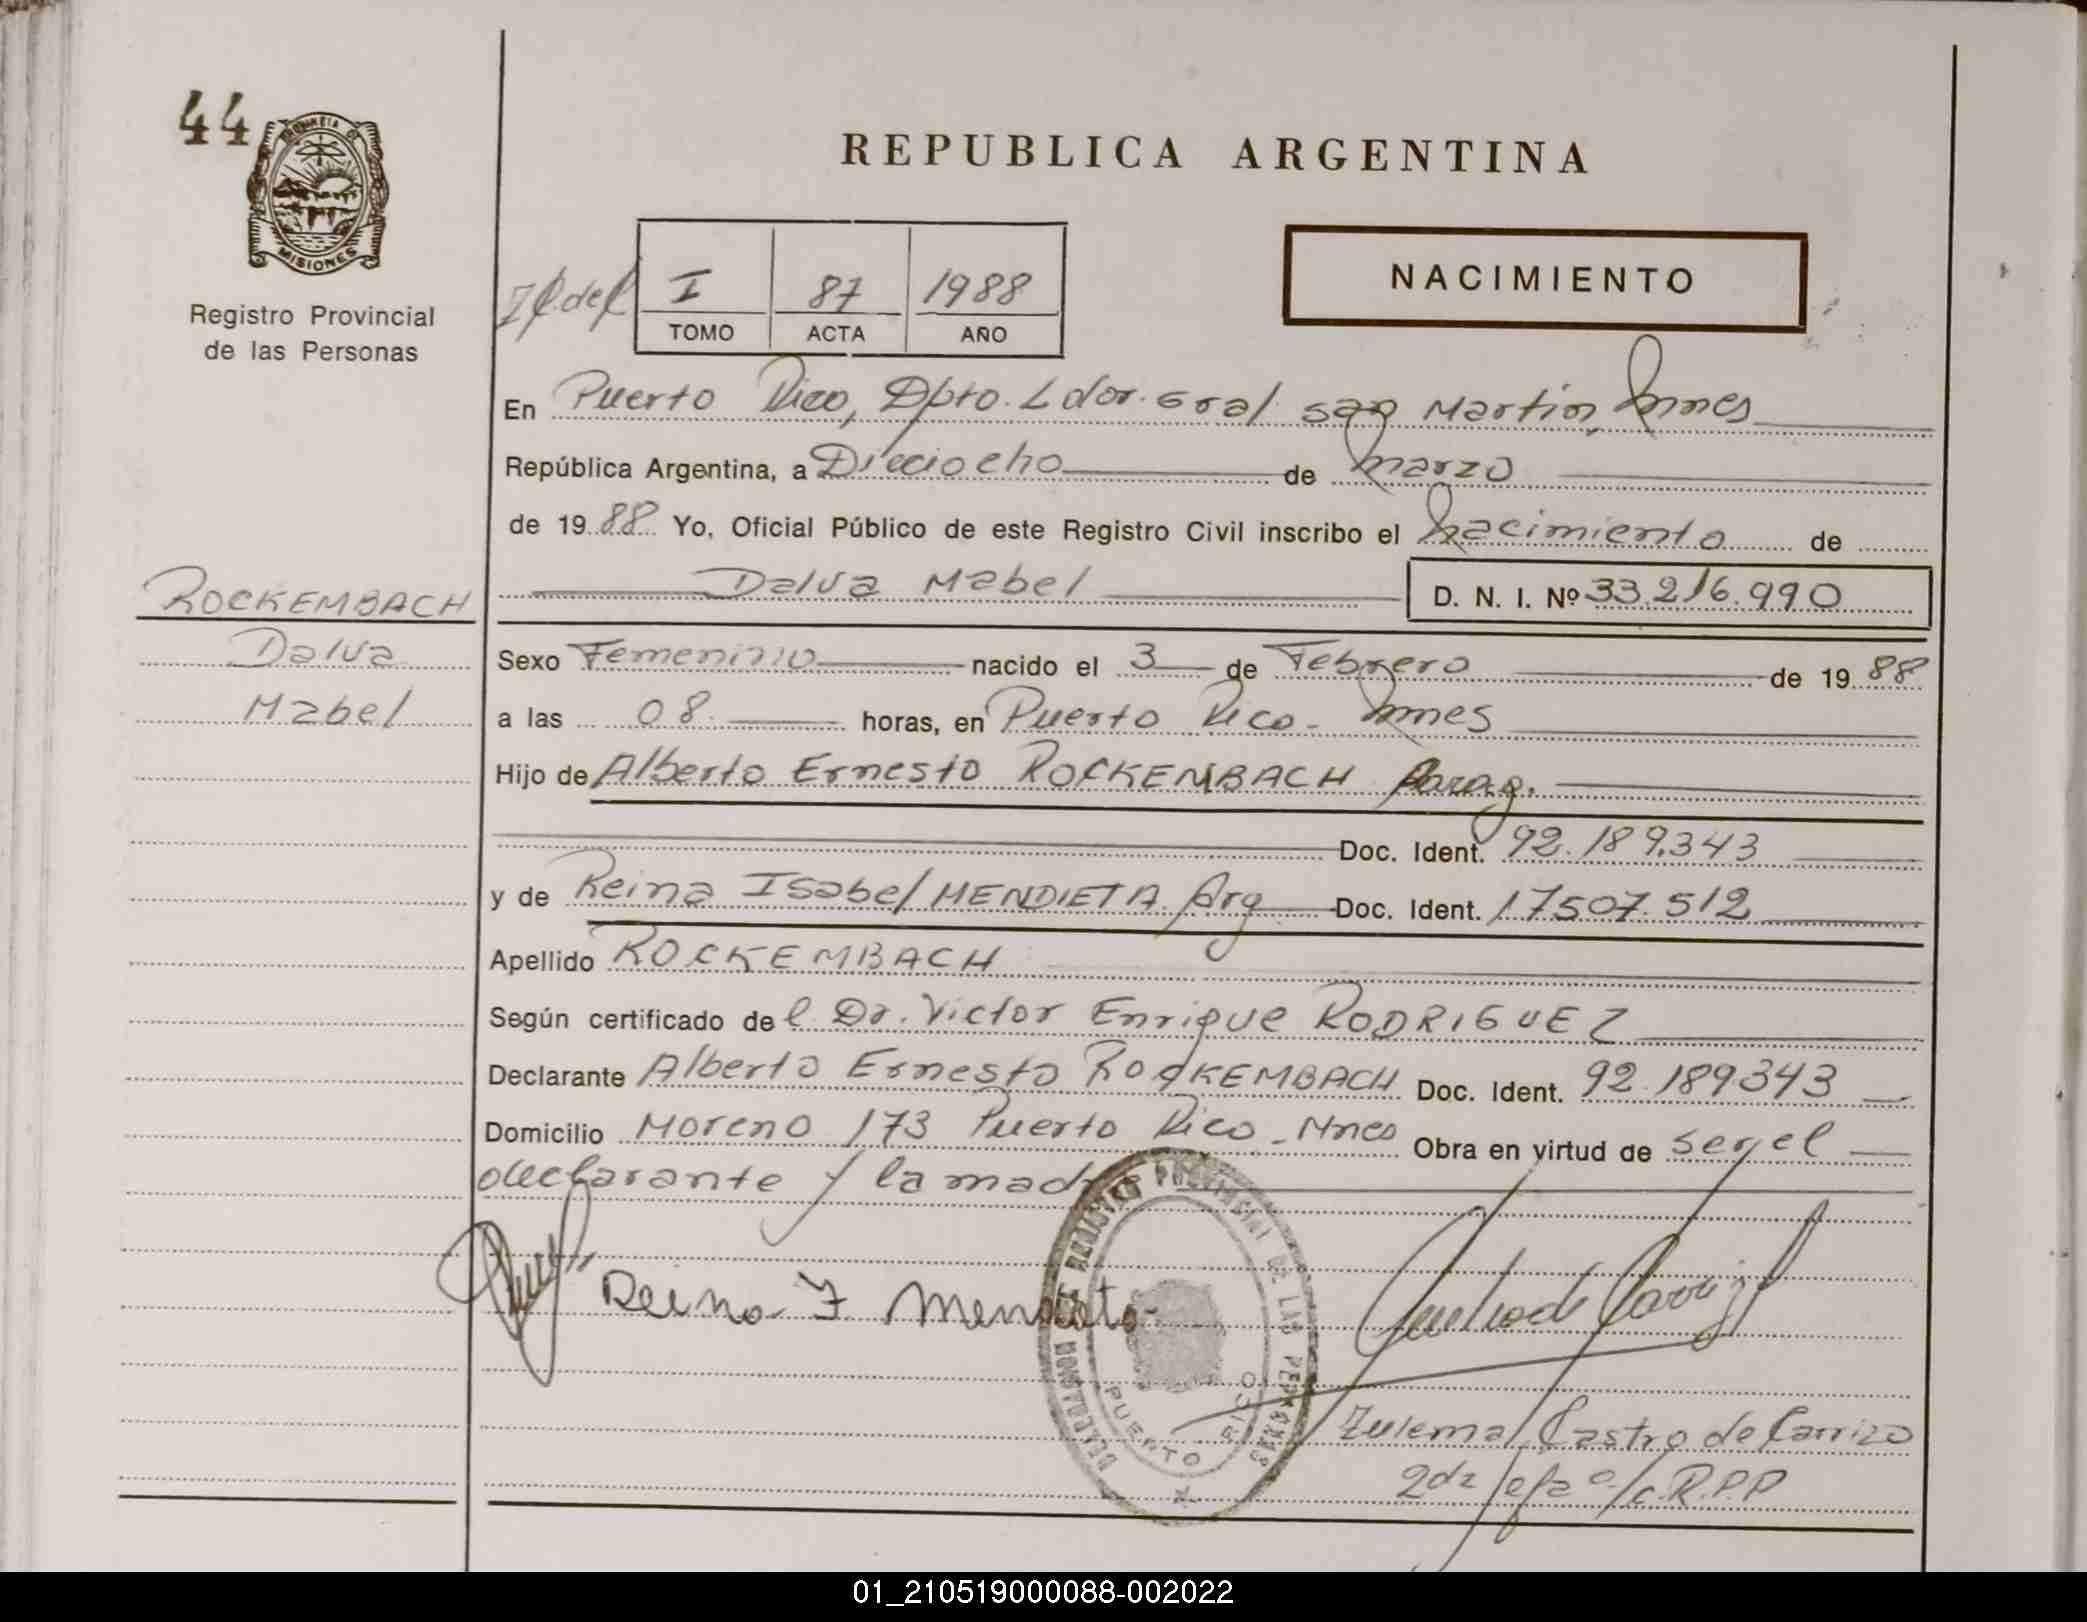 44
PROVINCIA DE
MISIONES
Registro Provincial
de las Personas
REPUBLICA ARGENTINA
I 87 1988
TOMO ACTA AÑO
NACIMIENTO
En Puerto Rico, Dpto. Ldor. Gral. San Martín, Mnes
República Argentina, a Dieciocho de Marzo
de 19 88 Yo, Oficial Público de este Registro Civil inscribo el Nacimiento de
Dalva Mabel D. N. I. Nº 33.216.990
ROCKEMBACH
Dalva
Mabel
Sexo Femenino nacido el 3 de Febrero de 19 88
a las 08 horas, en Puerto Rico - Mnes
Hijo de Alberto Ernesto ROCKEMBACH Parag.
Doc. Ident. 92.189.343
y de Reina Isabel MENDIETA Arg Doc. Ident. 17507.512
Apellido ROCKEMBACH
Según certificado de l Dr. Victor Enrique RODRIGUEZ
Declarante Alberto Ernesto ROCKEMBACH Doc. Ident. 92.189343
Domicilio Moreno 173 Puerto Rico - Mnes Obra en virtud de ser el
declarante y la madre
Reina I. Mendieta
REGISTRO PROVINCIAL DE LAS PERSONAS
PUERTO RICO
Zulema Castro de Carrizo
2da Jefa a/c. R.P.P
01_210519000088-002022